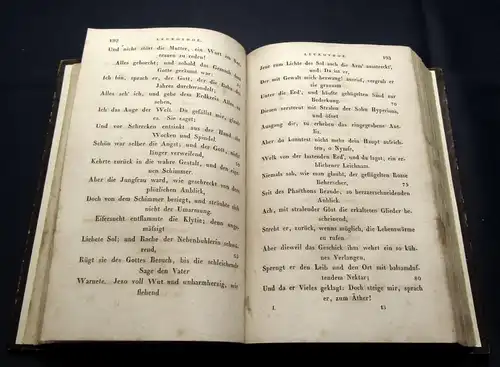 192 LEUKOTHOE.
Und nicht stört die Mutter, ein Wort im Ver-
trauen zu reden!
Alles gehorcht; und sobald das Gemach dem
Gotte geräumt war:
Ich bin, sprach er, der Gott, der die
Jahrs durchwandelt,
Alles seh' ich, und gebe dem Erdkreise Alles zu
sehen,
Ich das Auge der Welt. Du gefällst mir, glaub
es. Sie zaget;
Und vor Schrecken entsinkt aus der Hand ihr
Wocken und Spindel.
Schön war selber die Angst; und der Gott, nicht
länger verweilend,
Kehrte zurück in die wahre Gestalt, und den eige-
nen Schimmer.
Aber die Jungfrau ward, wie geschreckt von dem
plözlichen Anblick,
Doch von dem Schimmer besiegt, und sträubte sich
nicht der Umarmung.
Eiferzucht entflammte die Klytie; denn unge-
mäßigt
Liebete Sol; und Rache der Nebenbuhlerin schnau-
bend,
Rügt sie des Gottes Besuch, bis die schleichende
Sage den Vater
Warnete. Jene voll Wut und unbarmherzig, wie
flehend
LEUKOTHOE. 193
Jene zum Lichte des Sol auch die Arm' ausstreckt',
und: Da ist er,
Der mit Gewalt mich bezwang! ausrief, vergrub er
sie grausam
Unter die Erd', und häufte gehügelten Sand zur
Bederkung. 70
Diesen verstreut mit Stralen der Sohn Hyperions,
und öfnet
Ausgang dir, zu erheben das eingegrabene Ant-
liz.
Aber du konntest nicht mehr dein Haupt aufrich-
ten, o Nymfe,
Welk von der lastenden Erd', und du lagst, ein er-
blichener Leichnam.
Niemals sah, wie man glaubt, der geflügelten Rosse
Beherscher, 75
Seit des Phaëthons Brande, so herzzerschneidenden
Anblick.
Ach, mit stralender Glut die erkalteten Glieder be-
scheinend,
Strebt er, zurück, wenns möglich, die Lebenswärme
zu rufen.
Aber dieweil das Geschick ihm wehrt ein so küh-
nes Verlangen,
Sprengt er den Leib und den Ort mit balsamduf-
tendem Nektar; 80
Und da er Vieles geklagt: Doch steige mir, sprach
er, zum Äther!
I. 13